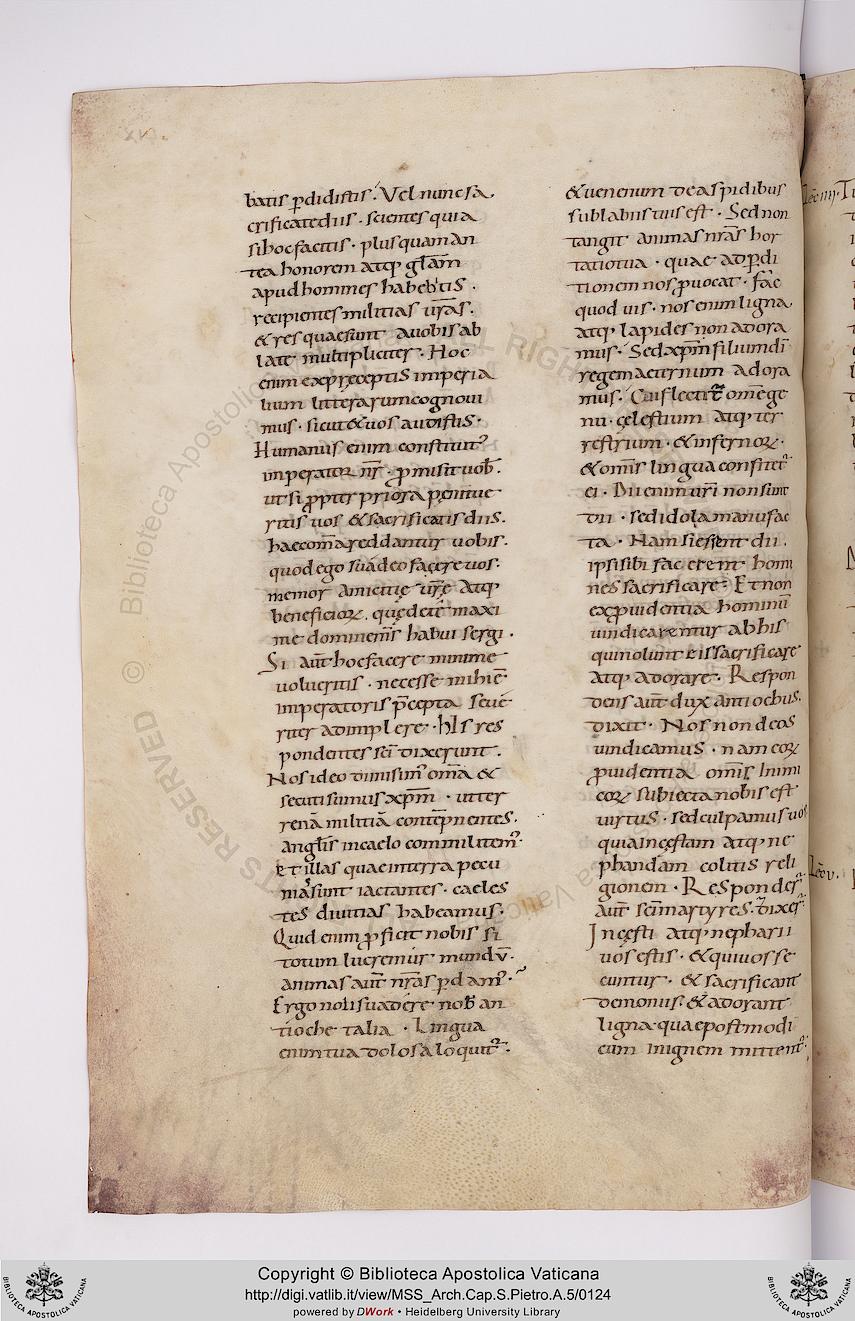 batis ꝑdidistis. Vel nunc sa
crificate diis. scientes quia
si hoc facitis. plus quam an
tea honorem atq; gl̅am
apud homines habebitis.
recipientes militias ur̅as.
& res quae sunt a uobis ab
late multipliciter. Hoc
enim ex p̅receptis imperia
lium litterarum cognoui
mus. sicut & uos audistis.
Humanus enim constituit᷒
imperator nr̅. ꝓmisit uob̅.
ut si ꝓpter priora penitue
ritis uos & sacrificatis diis.
haec om̅a reddantur uobis.
quod ego suadeo facere uos.
memor amicitie ur̅e atq;
beneficioꝝ. quę de te maxi
me domine m̅s habui sergi.
Si aut̅ hoc facere minime
uolueritis. necesse mihi e̅
imperatoris p̅cepta seue
riter adimplere. hIs res
pondentes sc̅i dixerunt.
Nos ideo dimisim᷒ om̅a &
secuti sumus xp̅m. ut ter
rena̅ militia̅ contẽpnentes.
angl̅is in caelo commilitem᷒.
et illas quae in terra pecu
nia sunt iactantes. caeles
tes diuitias habeamus.
Quid enim ꝓficit nobis si
totum lucremur mundu̅.
animas aut̅ nr̅as ꝑdam᷒.
Ergo noli suadere nob̅ an
tioche talia. Lingua
enim tua dolosa loquit᷒.
& uenenum de aspidibus
sub labiis tuis est. Sed non
tangit animas nr̅as hor
tatio tua. quae ad ꝑdi
tionem nos ꝓuocat. fac
quod uis. nos enim ligna
atq; lapides non adora
mus. Sed xp̅m filium di̅
regem aeternum adora
mus. Cui flectit᷒ om̅e ge
nu. çelestium atq; ter
restrium. & infernoꝝ.
& omis̅ lingua confitet᷒
ei. Dii enim uri̅ non sunt
dii. sed idola manu fac
ta. Nam si essent dii.
ipsi sibi facerent homi
nes sacrificare. Et non
ex ꝓuidentia hominu̅
uindicarentur ab his
qui nolunt eis sacrificare
atq; adorare. Respon
dens aut̅ dux antiochus.
dixit. Nos non deos
uindicamus. nam eoꝝ
ꝓuidentia omis̅ Inimi
coꝝ subiecta nobis est
uirtus. sed culpamus uos
quia incęstam atq; ne
phandam colitis reli
gionem. Respondes᷒
aut̅ sc̅i martyres. dixer᷒
Incęsti atq; nepharii
uos estis. & qui uos se
cuntur. & sacrificant
demoniis. & adorant
ligna. quae post modi
cum in ignem mittent᷒.
Lec̅ iiij.
Lec̅ v.
Copyright © Biblioteca Apostolica Vaticana
http://digi.vatlib.it/view/MSS_Arch.Cap.S.Pietro.A.5/0124
powered by DWork • Heidelberg University Library